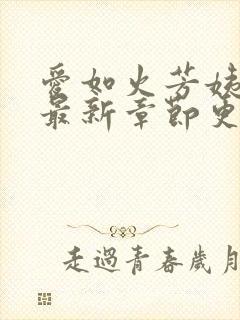 愛如火芳姨
最新章節更
走過青春歲月